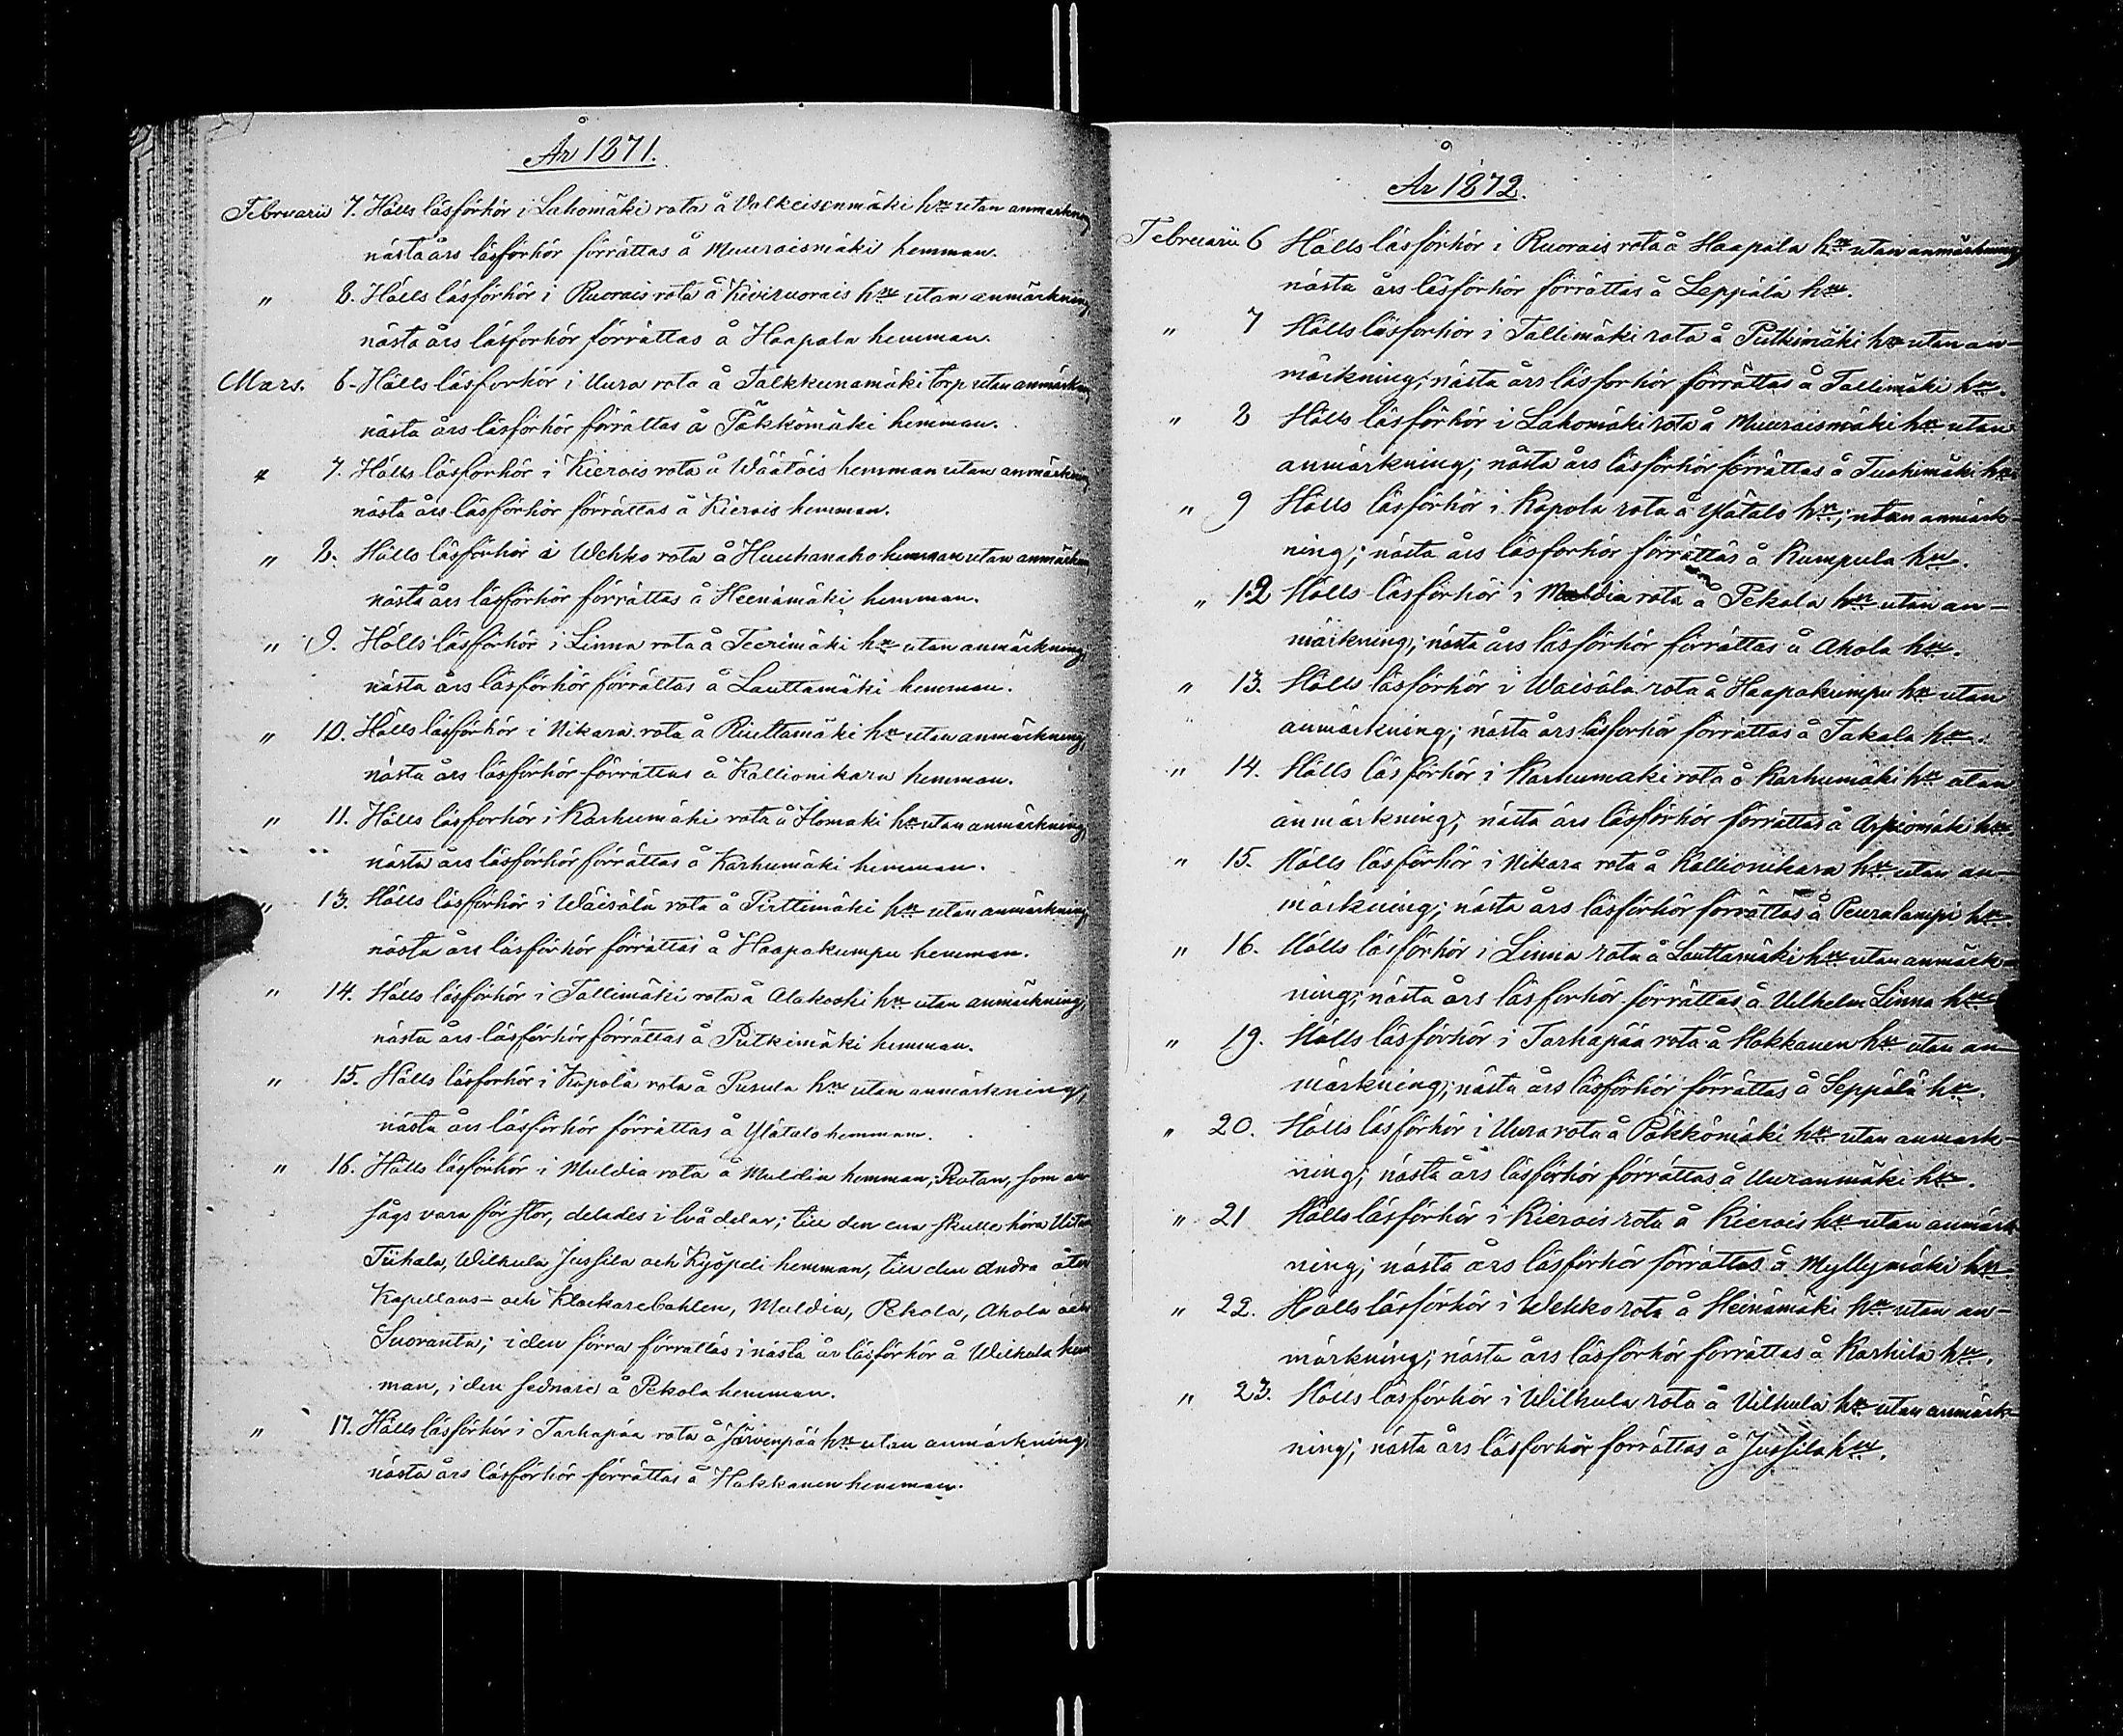 År 1871.
Februarii 7. Hölls läsförhör i Lahomäki rota å Valkeisenmäki hn utan anmärkning
nästa års läsförhör förrättas å Muuraismäki hemman.
" 8. Hölls läsförhör i Ruorais rota å Kiviruorais hn utan anmärkning
nästa års läsförhör förrättas å Haapala hemman.
Mars. 6. Hölls läsförhör i Uura rota å Talkkunamäki torp utan anmärkn
nästa års läsförhör förrättas å Päkkömäki hemman.
" 7. Hölls läsförhör i Kierois rota å Wäätäis hemman utan anmärkn
nästa års läsförhör förrättas å Kierois hemman.
" 8. Hölls läsförhör i Wehko rota å Huuhanaho hemman utan anmärkn
nästa års läsförhör förrättas å Heenämäki hemman.
" 9. Hölls läsförhör i Linna rota å Teerimäki hn utan anmärkning,
nästa års läsförhör förrättas å Lauttamäki hemman.
" 10. Hölls läsförhör i Nikara rota å Riuttamäki hn utan anmärkning,
nästa års läsförhör förrättas å Kallionikara hemman.
" 11. Hölls läsförhör i Karhumäki rota å Ilomäki hn utan anmärkning,
nästa års läsförhör förrättas å Karhumäki hemman.
" 13. Hölls läsförhör i Wäisälä rota å Pirttimäki hn utan anmärkning
nästa års läsförhör förrättas å Haapakumpu hemman.
" 14. Hölls läsförhör i Tallimäki rota å Alakoski hn utan anmärkning,
nästa års läsförhör förrättas å Putkimäki hemman.
" 15. Hölls läsförhör i Kapola rota å Pusula hn utan anmärkning,
nästa års läsförhör förrättas å Ylätalo hemman.
" 16. Hölls läsförhör i Muldia rota å Muldia hemman; Rotan, som an
sågs vara för stor, delades i två delar; till den ena skulle höra
Tiihala, Wilhula Jussila och Kyöpeli hemman, till den andra åter
Kapellans- och Klockarebohlen, Muldia, Pekola, Ahola och
Suoranta; i den förra förrättas i nästa år läsförhör å Wilhula hem
man, i den sednare å Pekola hemman.
" 17. Hölls läsförhör i Tarhapää rota å Järvenpää hn utan anmärkning,
nästa års läsförhör förrättas å Hakkanen hemman.
År 1872.
Februarii 6 Hölls läsförhör i Ruorais rota å Haapala hn utan anmärkning
nästa års läsförhör förrättas å Leppälä hn.
" 7 Hölls läsförhör i Tallimäki rota å Putkimäki hn utan an-
märkning; nästa års läsförhör förrättas å Tallimäki hn.
" 8 Hölls läsförhör i Lahomäki rota å Muuraismäki hn utan
anmärkning; nästa års läsförhör förrättas å Tuohimäki hn
" 9 Hölls läsförhör i Kapola rota å Ylätalo hn; utan anmärk-
ning; nästa års läsförhör förrättas å Kumpula hn.
" 12 Hölls läsförhör i Muldia rota å Pekola hn utan an-
märkning; nästa års läsförhör förrättas å Ahola hn.
" 13. Hölls läsförhör i Waisälä rota å Haapakumpu hn utan
anmärkning; nästa års läsförhör förrättas å Takala hn.
" 14. Hölls läsförhör i Karhumäki rota å Karhumäki hn utan
anmärkning; nästa års läsförhör förrättas å Arpiomäki hn
" 15. Hölls läsförhör i Nikara rota å Kallionikara hn utan an-
märkning; nästa års läsförhör förrättas å Peuralampi hn.
" 16. Hölls läsförhör i Linna rota å Lauttamäki hn utan anmärk-
ning; nästa års läsförhör förrättas å Vilhelm Linna hn
" 19. Hölls läsförhör i Tarhapää rota å Hakkanen hn utan an-
märkning; nästa års läsförhör förrättas å Seppälä hn.
" 20. Hölls läsförhör i Uura rota å Päkkömäki hn utan anmärk-
ning; nästa års läsförhör förrättas å Uuranmäki hn.
" 21 Hölls läsförhör i Kierois rota å Kierois hn utan anmärk
ning; nästa års läsförhör förrättas å Myllymäki hn
" 22. Hölls läsförhör i Wehko rota å Heinämäki hn utan an-
märkning; nästa års läsförhör förrättas å Karhila hn.
" 23. Hölls läsförhör i Wilhula rota å Vilhula hn utan anmärk-
ning; nästa års läsförhör förrättas å Jussila hn.